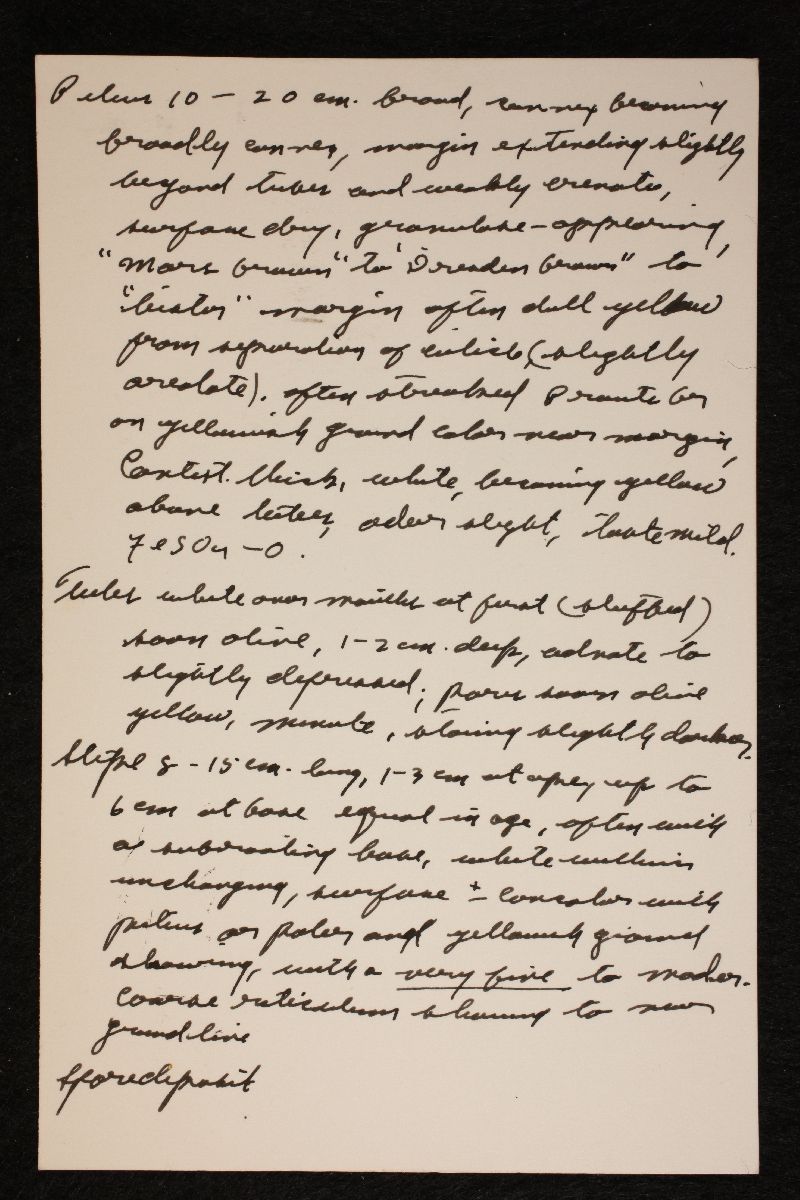 Pileus 10 – 20 cm. broad, convex becoming
broadly convex, margin extending slightly
beyond tubes and weakly crenate,
surface dry, granulose-appearing,
"Mars brown" to "Dresden brown" to
"bister" margin often dull yellow
from separation of cuticle (slightly
areolate). often streaked
on yellowish ground color near margin,
Context thick, white, becoming yellow
above tubes, odor slight, taste mild.
FeSO4 – O.
Tubes white over mouths at first (stuffed)
soon olive, 1–2 cm. deep, adnate to
slightly depressed; pores soon olive
yellow, minute, staining slightly darker.
Stipe 8 – 15 cm. long, 1–3 cm at apex up to
6 cm at base equal in age, often with
a subrooting base, white within
unchanging, surface ± concolor with
pileus or paler and yellowish ground
showing, with a very fine to moder.
coarse reticulum showing to near
ground line
Spore deposit